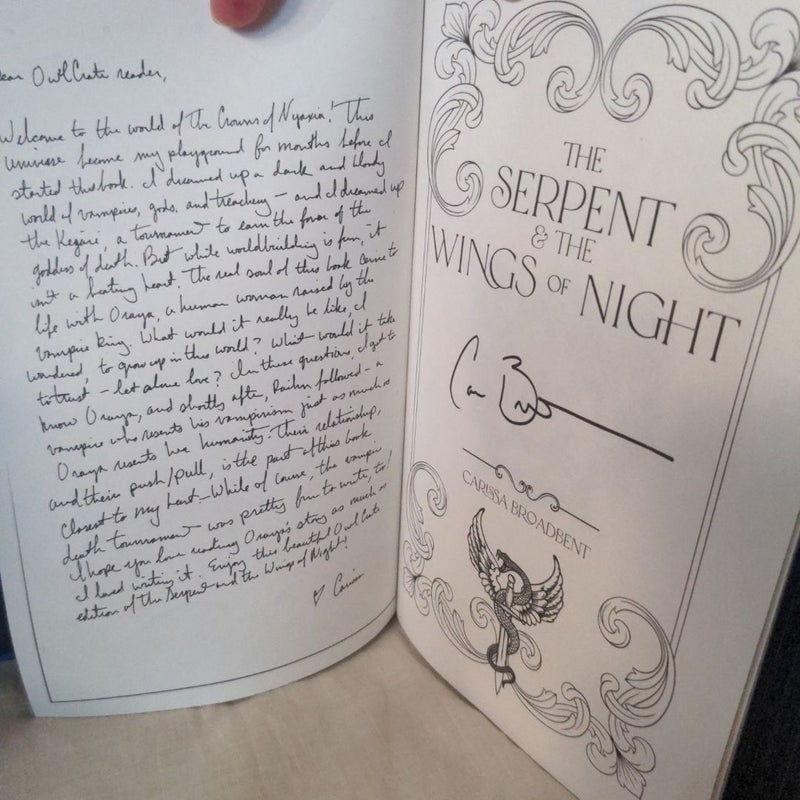 Dear OwlCrate reader,
Welcome to the world of the Crowns of Nyaxia! This
universe became my playground for months before I
started this book. I dreamed up a dark and bloody
world of vampires, gods, and treachery – and I dreamed up
the Kejari, a tournament to earn the favor of the
goddess of death. But while worldbuilding is fun, it
isn't a beating heart. The real soul of this book came to
life with Oraya, a human woman raised by the
vampire king. What would it really be like, I
wondered, to grow up in this world? What would it take
to trust – let alone love? In these questions, I got to
know Oraya, and shortly after, Raihn followed – a
vampire who resents his vampirism just as much as
Oraya resents her humanity. Their relationship,
and their push/pull, is the part of this book
closest to my heart – While of course, the vampire
death tournament was pretty fun to write, too!
I hope you love reading Oraya's story as much as
I loved writing it. Enjoy this beautiful OwlCrate
edition of The Serpent and the Wings of Night!
♡ Carissa
THE
SERPENT
& THE
WINGS OF NIGHT
CARISSA BROADBENT